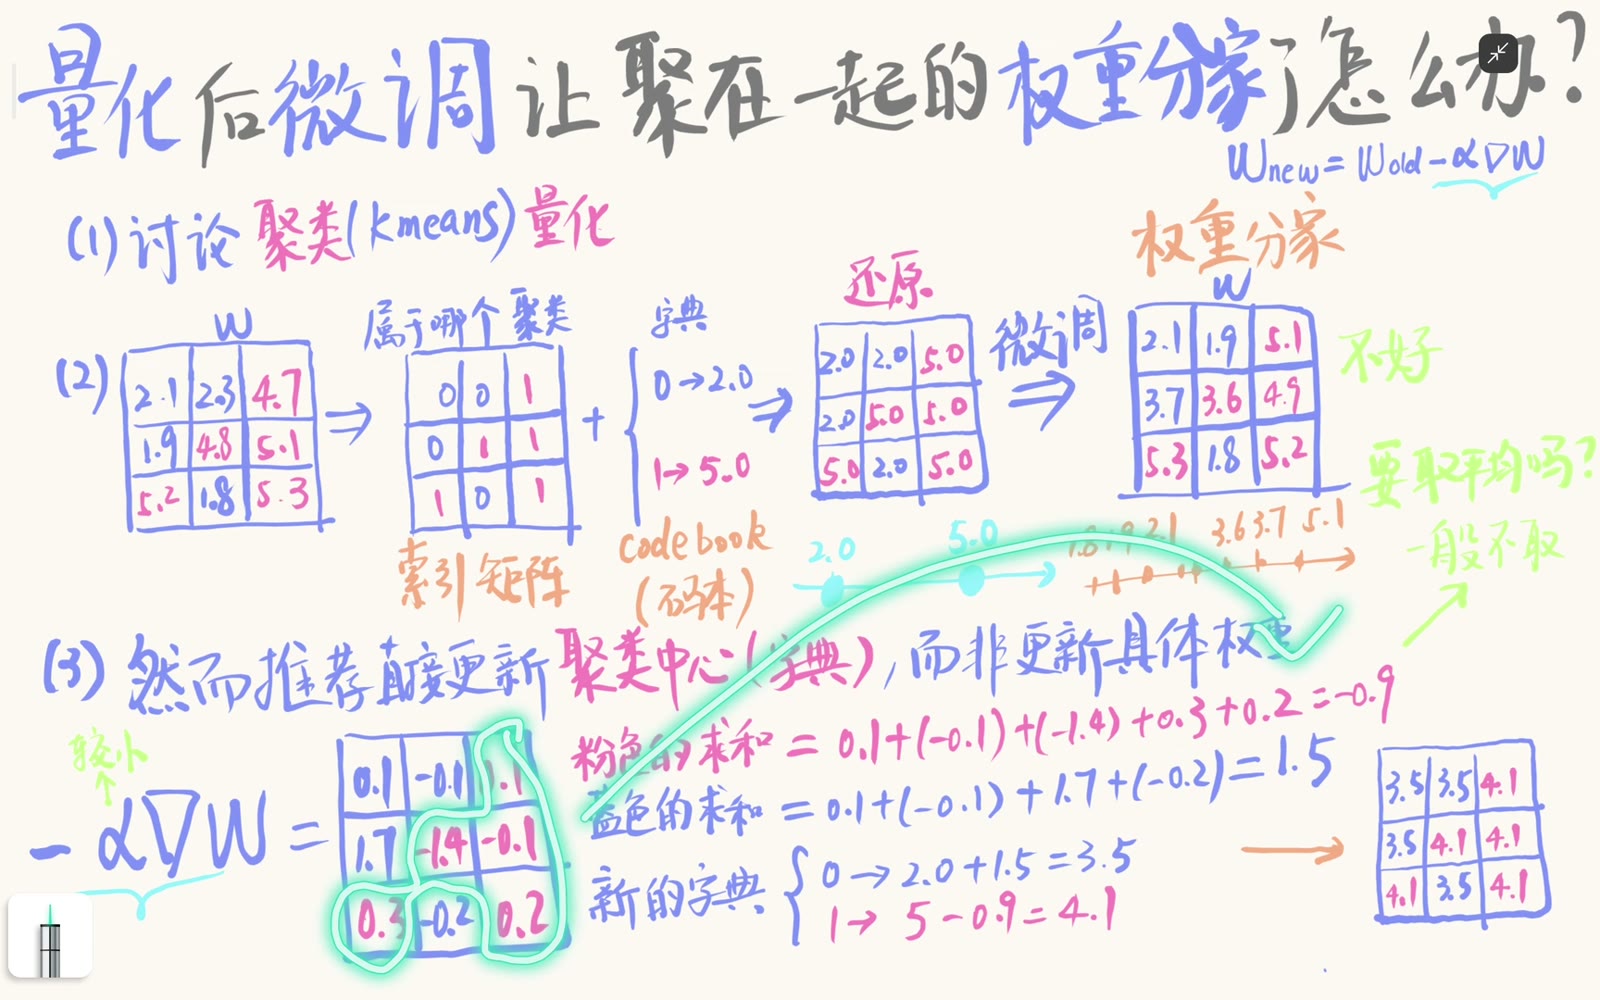 量化后微调让聚在一起的权重分家了怎么办?
Wnew = Wold - α∇W
(1) 讨论聚类(kmeans)量化
权重分家
还原
W
属于哪个聚类
字典
微调
W
(2)
2.1 2.3 4.7
1.9 4.8 5.1
5.2 1.8 5.3
⇒
0 0 1
0 1 1
1 0 1
+
0→2.0
1→5.0
⇒
2.0 2.0 5.0
2.0 5.0 5.0
5.0 2.0 5.0
⇒
2.1 1.9 5.1
3.7 3.6 4.9
5.3 1.8 5.2
不好
要取平均吗?
一般不取
索引矩阵
codebook
(码本)
2.0 5.0
1.8 1.9 2.1 3.6 3.7 5.1
(3) 然而推荐直接更新聚类中心(字典),而非更新具体权重
较小
-α∇W =
0.1 -0.1 1.1
1.7 -1.4 -0.1
0.3 -0.2 0.2
粉色的求和 = 0.1+(-0.1)+(-1.4)+0.3+0.2=-0.9
蓝色的求和 = 0.1+(-0.1)+1.7+(-0.2)=1.5
新的字典
0→2.0+1.5=3.5
1→5-0.9=4.1
3.5 3.5 4.1
3.5 4.1 4.1
4.1 3.5 4.1